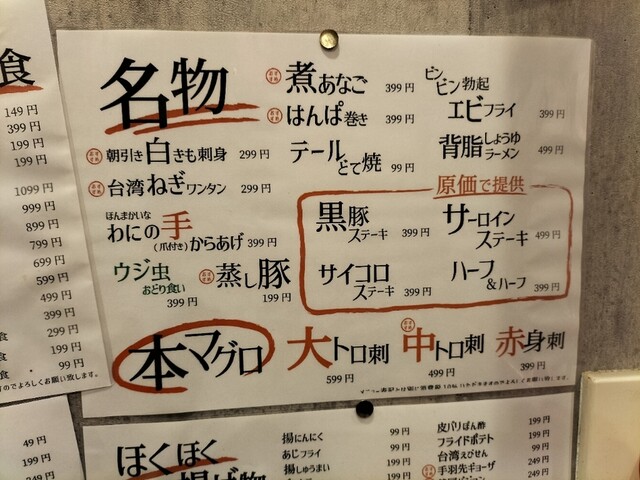 食
149円
399円
199円
199円
1099円
999円
899円
799円
699円
599円
499円
399円
299円
199円
99円
のでよろしくお願い致します。
49円
199円
99円
名物
煮あなご 399円
はんぱ巻き 399円
ビンビン勃起
エビフライ 399円
朝引き白きも刺身 299円
テールとて焼 99円
背脂しょうゆラーメン 499円
台湾ねぎワンタン 299円
原価で提供
ほんまかいな
わにの手(爪付き)からあげ 399円
黒豚ステーキ 399円
サーロインステーキ 499円
ウジ虫
おどり食い
399円
蒸し豚
199円
サイコロステーキ 399円
ハーフ&ハーフ 399円
本マグロ
大トロ刺
599円
中トロ刺
499円
赤身刺
399円
ほくほく
揚げ物
揚にんにく 99円
あじフライ 99円
揚しゅうまい 199円
皮パリぽん酢 199円
フライドポテト 99円
台湾えびせん 199円
手羽先ギョーザ 249円
249円